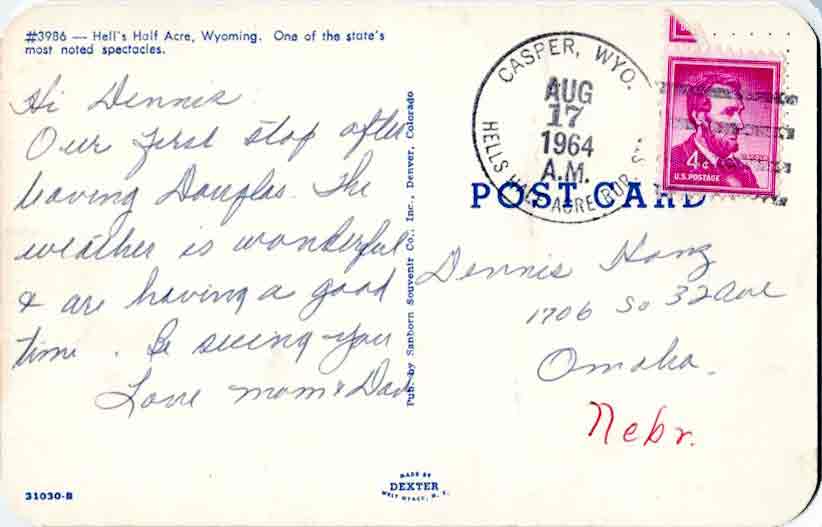 #3986 — Hell's Half Acre, Wyoming. One of the state's
most noted spectacles.
Hi Dennis
Our first stop after
leaving Douglas. The
weather is wonderful
& are having a good
time. Be seeing you
Love Mom & Dad
Pub. by Sanborn Souvenir Co., Inc., Denver, Colorado
CASPER, WYO.
AUG
17
1964
A.M.
HELLS HALF ACRE RUR. STA.
4¢
U.S. POSTAGE
POST CARD
Dennis Hanz
1706 So 32 Ave
Omaha.
Nebr.
31030-B
MADE BY
DEXTER
WEST NYACK, N. Y.